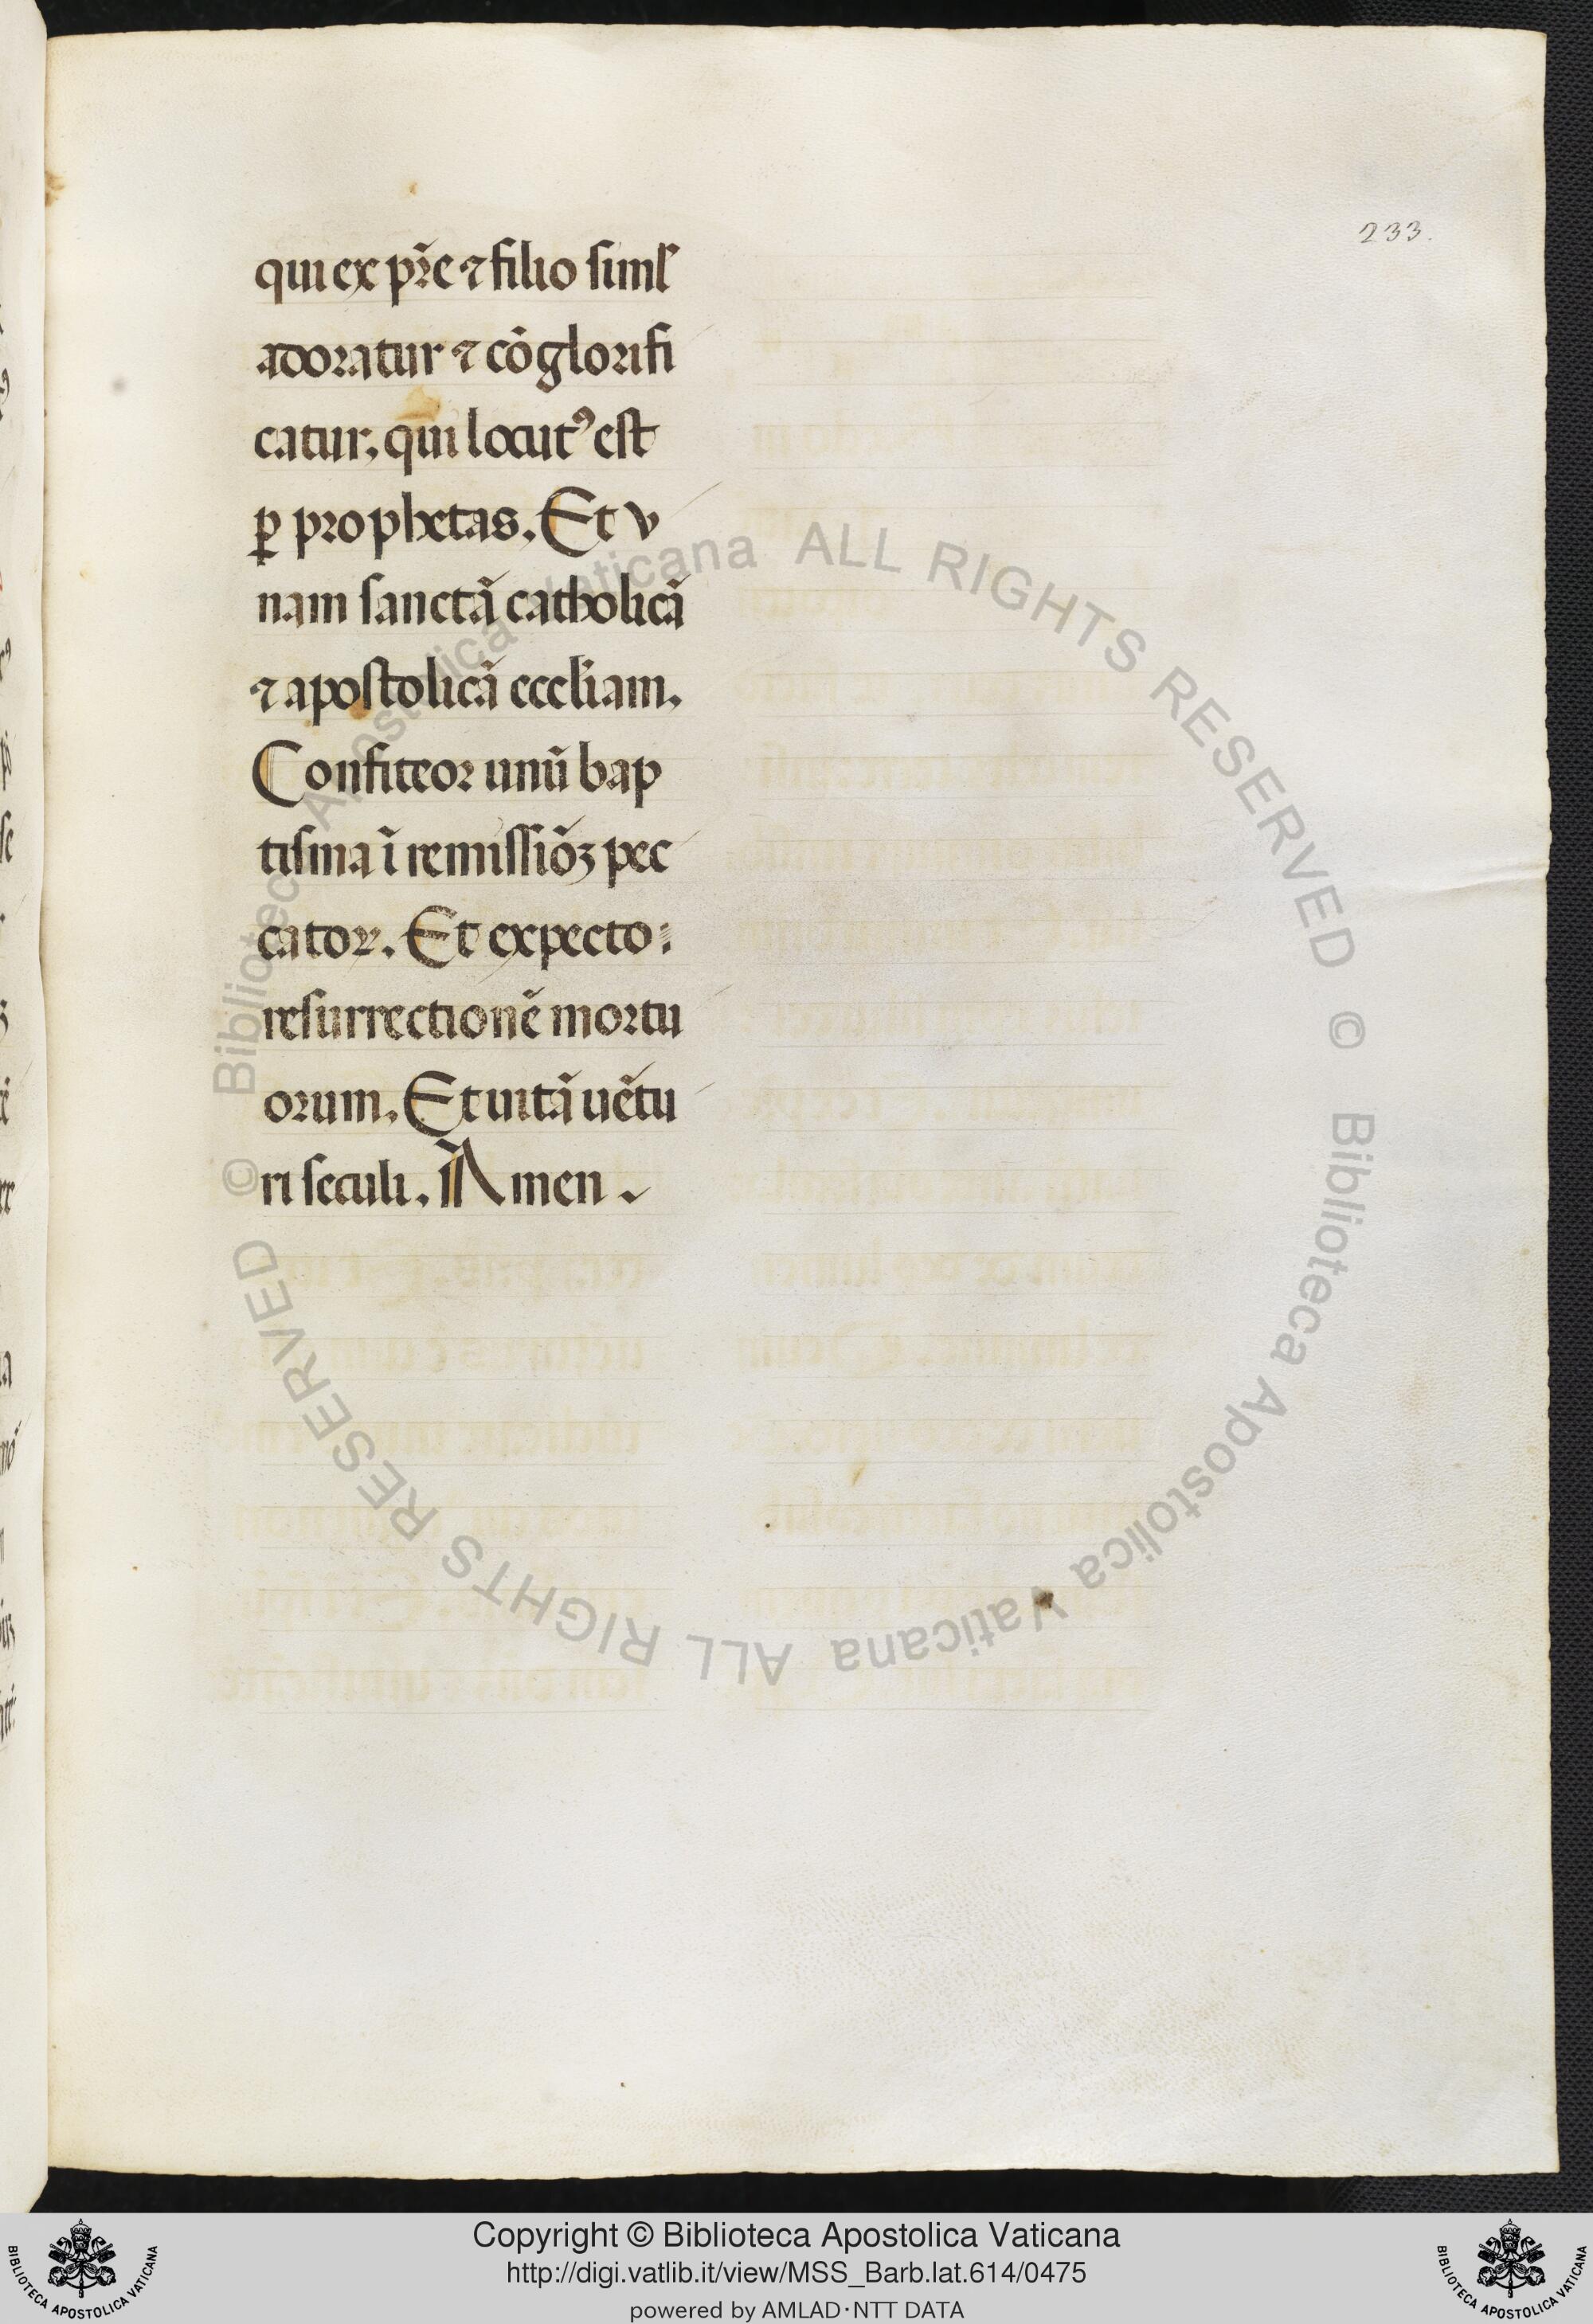 233.
qui ex pr̃e ⁊ filio siml̃
adoratur ⁊ cõglorifi
catur, qui locutꝰ est
ꝑ prophetas. Et v
nam sanctã catholicã
⁊ apostolicã eccl̃iam.
Confiteor unũ bap
tisma ĩ remissiõꝫ pec
catoꝝ. Et expecto:
resurrectionẽ mortu
orum. Et uitã uẽtu
ri seculi. Amen
© Biblioteca Apostolica Vaticana ALL RIGHTS RESERVED
© Biblioteca Apostolica Vaticana ALL RIGHTS RESERVED
Copyright © Biblioteca Apostolica Vaticana
http://digi.vatlib.it/view/MSS_Barb.lat.614/0475
powered by AMLAD·NTT DATA
BIBLIOTECA APOSTOLICA VATICANA
BIBLIOTECA APOSTOLICA VATICANA